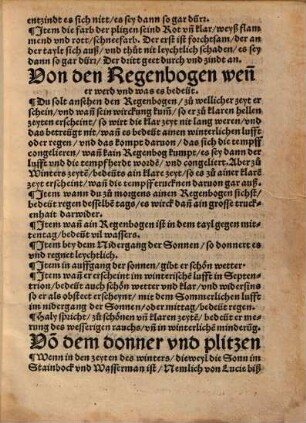 entzindt es sich nitt/ es sey dann so gar dürr.
¶Item die farb der plitzen seind Rot vñ klar/ weyß flam
mend vnd rott/ schneefarb. Der erst ist forchtsam/ der an
der tayle sich auß/ vnd thüt nit leychtlich schaden/ es sey
dann so gar dürr/ Der drit geet durch vnd zindt an.
Von den Regenbogen weñ
er werd vnd was es bedeüt.
¶Du solt ansehen den Regenbogen/ zů wellicher zeyt er
schein/ vnd wañ sein wirckung kuñ/ so er zů klaren hellen
zeyten erscheint/ so wirt die klar zeyt nit lang weren/ vnd
das betreügt nit/ wañ es bedeüt ainen winterlichen lufft
oder regen/ vnd das kompt daruon/ das sich die tempff
congelieren/ wañ kain Regenbog kumpt/ es sey dann so
der lufft vnd die tempf herdt werdē/ vnd congeliert. Aber zů
Winters zeytē/ bedeüts ain klare zeyt/ so es zů ainer klarē
zeyt erscheint/ wañ die tempff erauchen daruon gar auß.
¶Item wann du zů morgens ainen Regenbogen sichst/
bedeüt regen desselbē tags/ es wirck dañ ain grosse truc
kenhait darwider.
¶Item wañ ain Regenbogen ist in dem tayl gegen mit
tentag/ bedeüt vil wassers.
¶Item bey dem Nidergang der Sonnen/ so donnert es
vnd regnet leychtlich.
¶Item in auffgang der sonnen/ gibt er schön wetter.
¶Item wañ er erscheint im winterischē lufft in Septen-
trion/ bedeüt auch schön wetter vnd klar/ vnd widersins
so er als obstet erscheynt/ mit dem Sommerlichen lufft
im nidergang der Sonnen/ oder mittag/ bedeüt regen.
¶Haly spricht/ zů schönen vñ klaren zeytē/ bedeüt er me-
rung des wesserigen rauchs/ vñ in winterlichē minderüg.
Vō dem donner vnd plitzen
¶Wenn in den zeyten des winters/ dieweyl die Sonn im
Stainbock vnd Wasserman ist/ Nemlich von Lucie biß